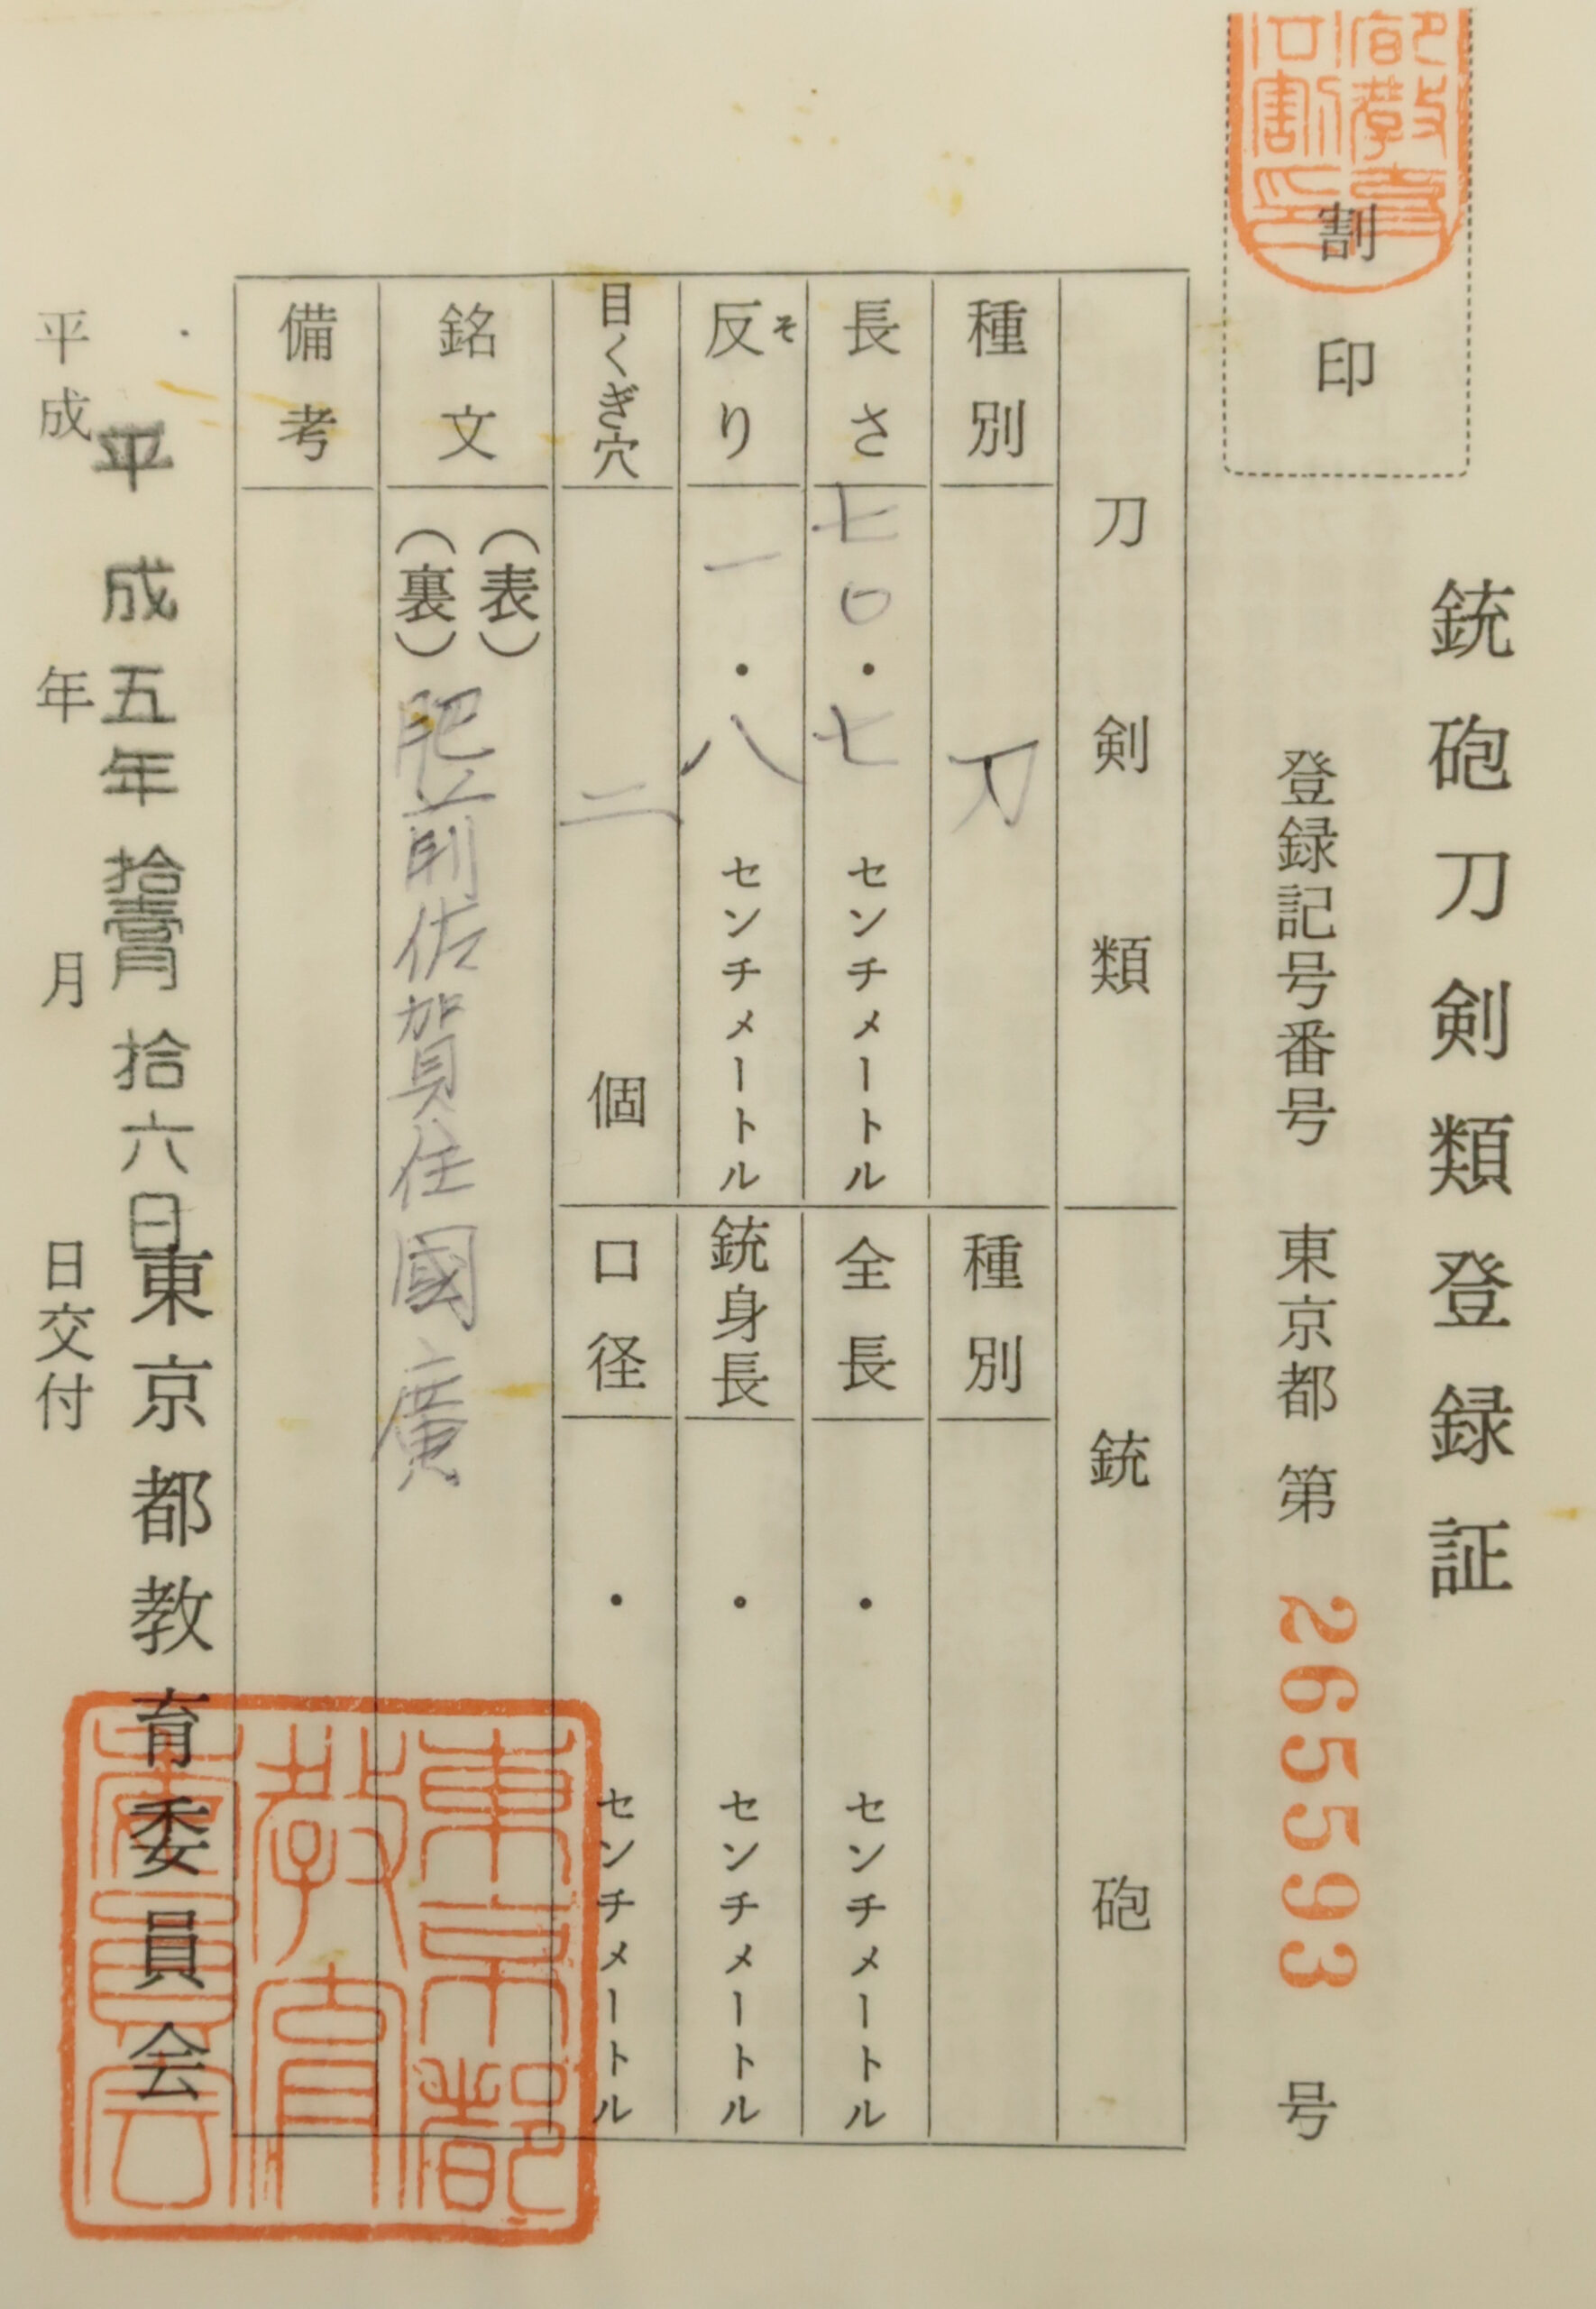 銃砲刀剣類登録証
割印
登録記号番号 東京都 第 265593 号
刀剣類
銃砲
種別 刀
長さ 七〇・七 センチメートル
反り 一・八 センチメートル
そ
目くぎ穴 二 個
銘文 (表)
(裏) 肥前佐賀住國廣
備考
種別
全長 ・ センチメートル
銃身長 ・ センチメートル
口径 ・ センチメートル
平成五年拾壹月拾六日
東京都教育委員会
平成 年 月 日交付
東京都
教育
委員会